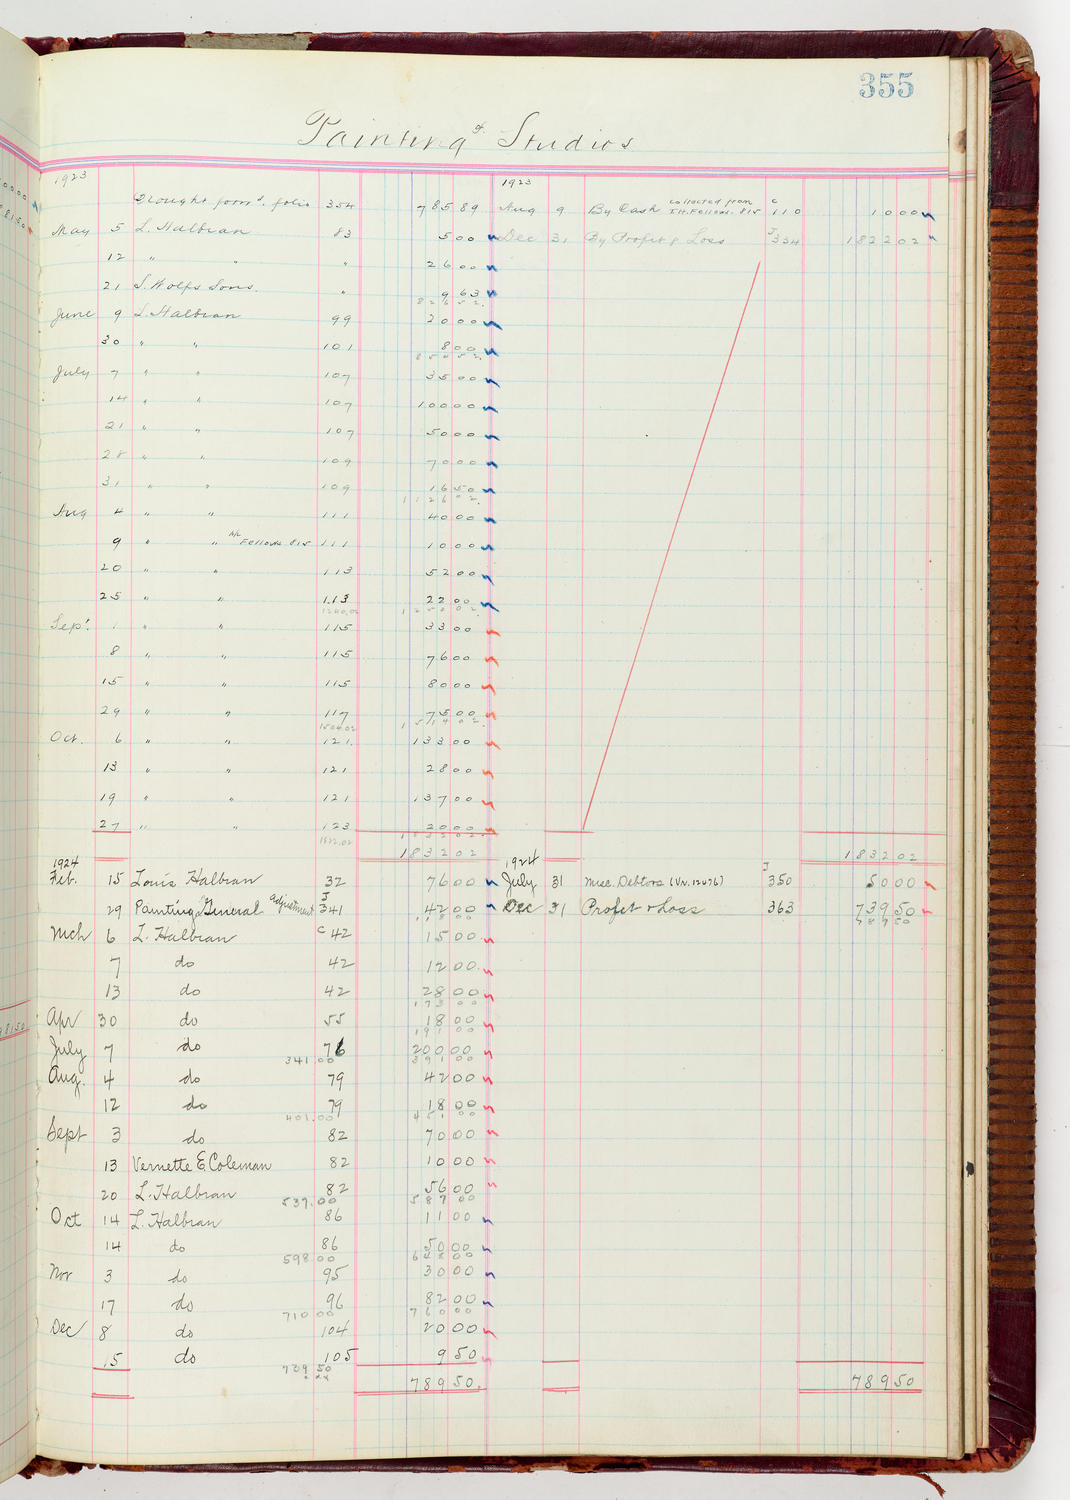 355
Painting of Studios
1923 1923
Brought forw'd. folio 354 785 89 Aug 9 By Cash collected from I.H. Fellows. 815 C 110 10 00
May 5 L. Halbran 83 5 00 Dec 31 By Profit & Loss J 334 1822 02
12 " " " 26 00
21 S. Wolfs Sons. " 9 63
826 52.
June 9 L. Halbran 99 20 00
30 " " 101 8 00
854 52.
July 7 " " 107 35 00
14 " " 107 100 00
21 " " 107 50 00
28 " " 109 70 00
31 " " 109 16 50
1126 02.
Aug 4 " " 111 40 00
9 " " A/c Fellows 815 111 10 00
20 " " 113 52 00
25 " " 113 22 00
1240.02 1250 02.
Sep't. 1 " " 115 33 00
8 " " 115 76 00
15 " " 115 80 00
29 " " 117 75 00
1504.02 1514 02.
Oct. 6 " " 121. 133 00
13 " " 121 28 00
19 " " 121 137 00
27 " " 123 20 00
1822.02 1832 02.
1832 02 1832 02
1924 1924
Feb. 15 Louis Halbran 32 76 00 July 31 Misc. Debtors (Vn. 12076) J 350 50 00
29 Painting General adjustment J 341 42 00 Dec 31 Profit & Loss 363 739 50
118 00 789 50
Mch 6 L. Halbran C 42 15 00
7 do 42 12 00.
13 do 42 28 00
173 00
Apr 30 do 55 18 00
191 00
July 7 do 76 200 00
341.00 391 00
Aug. 4 do 79 42 00
12 do 79 18 00
401.00 451 00
Sept 3 do 82 70 00
13 Vernette E Coleman 82 10 00
20 L. Halbran 82 56 00
537.00 587 00
Oct 14 L. Halbran 86 11 00
14 do 86 50 00
598.00 648 00
Nov 3 do 95 30 00
17 do 96 82 00
710 00 760 00
Dec 8 do 104 20 00
15 do 105 9 50
739 50
789 50. 789 50